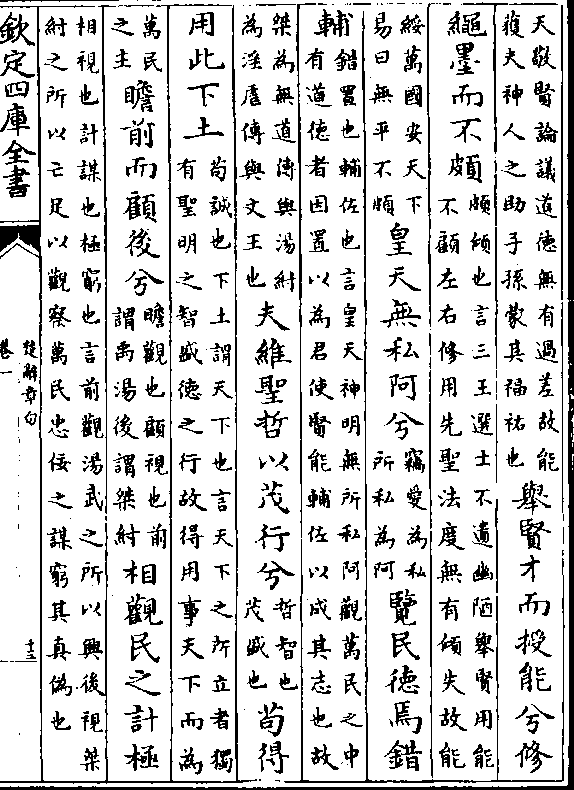 天敬賢論議道德無有過差故能
獲夫神人之助子孫蒙其福祐也
舉賢才而授能兮修
繩墨而不頗
頗傾也言三王選士不遺幽陋舉賢用能
不顧左右修用先聖法度無有傾失故能
綏萬國安天下
易曰無平不頗
皇天無私阿兮
竊愛為私
所私為阿
覽民德焉錯
輔
錯置也輔佐也言皇天神明無所私阿觀萬民之中
有道德者因置以為君使賢能輔佐以成其志也故
桀為無道傳與湯紂
為淫虐傳與文王也
夫維聖哲以茂行兮
哲智也
茂盛也
苟得
用此下土
苟誠也下土謂天下也言天下之所立者獨
有聖明之智盛德之行故得用事天下而為
萬民
之主
瞻前而顧後兮
瞻觀也顧視也前
謂禹湯後謂桀紂
相觀民之計極
相視也計謀也極窮也言前觀湯武之所以興後視桀
紂之所以亡足以觀察萬民忠佞之謀窮其真偽也
欽定四庫全書
楚辭章句
卷一
十三